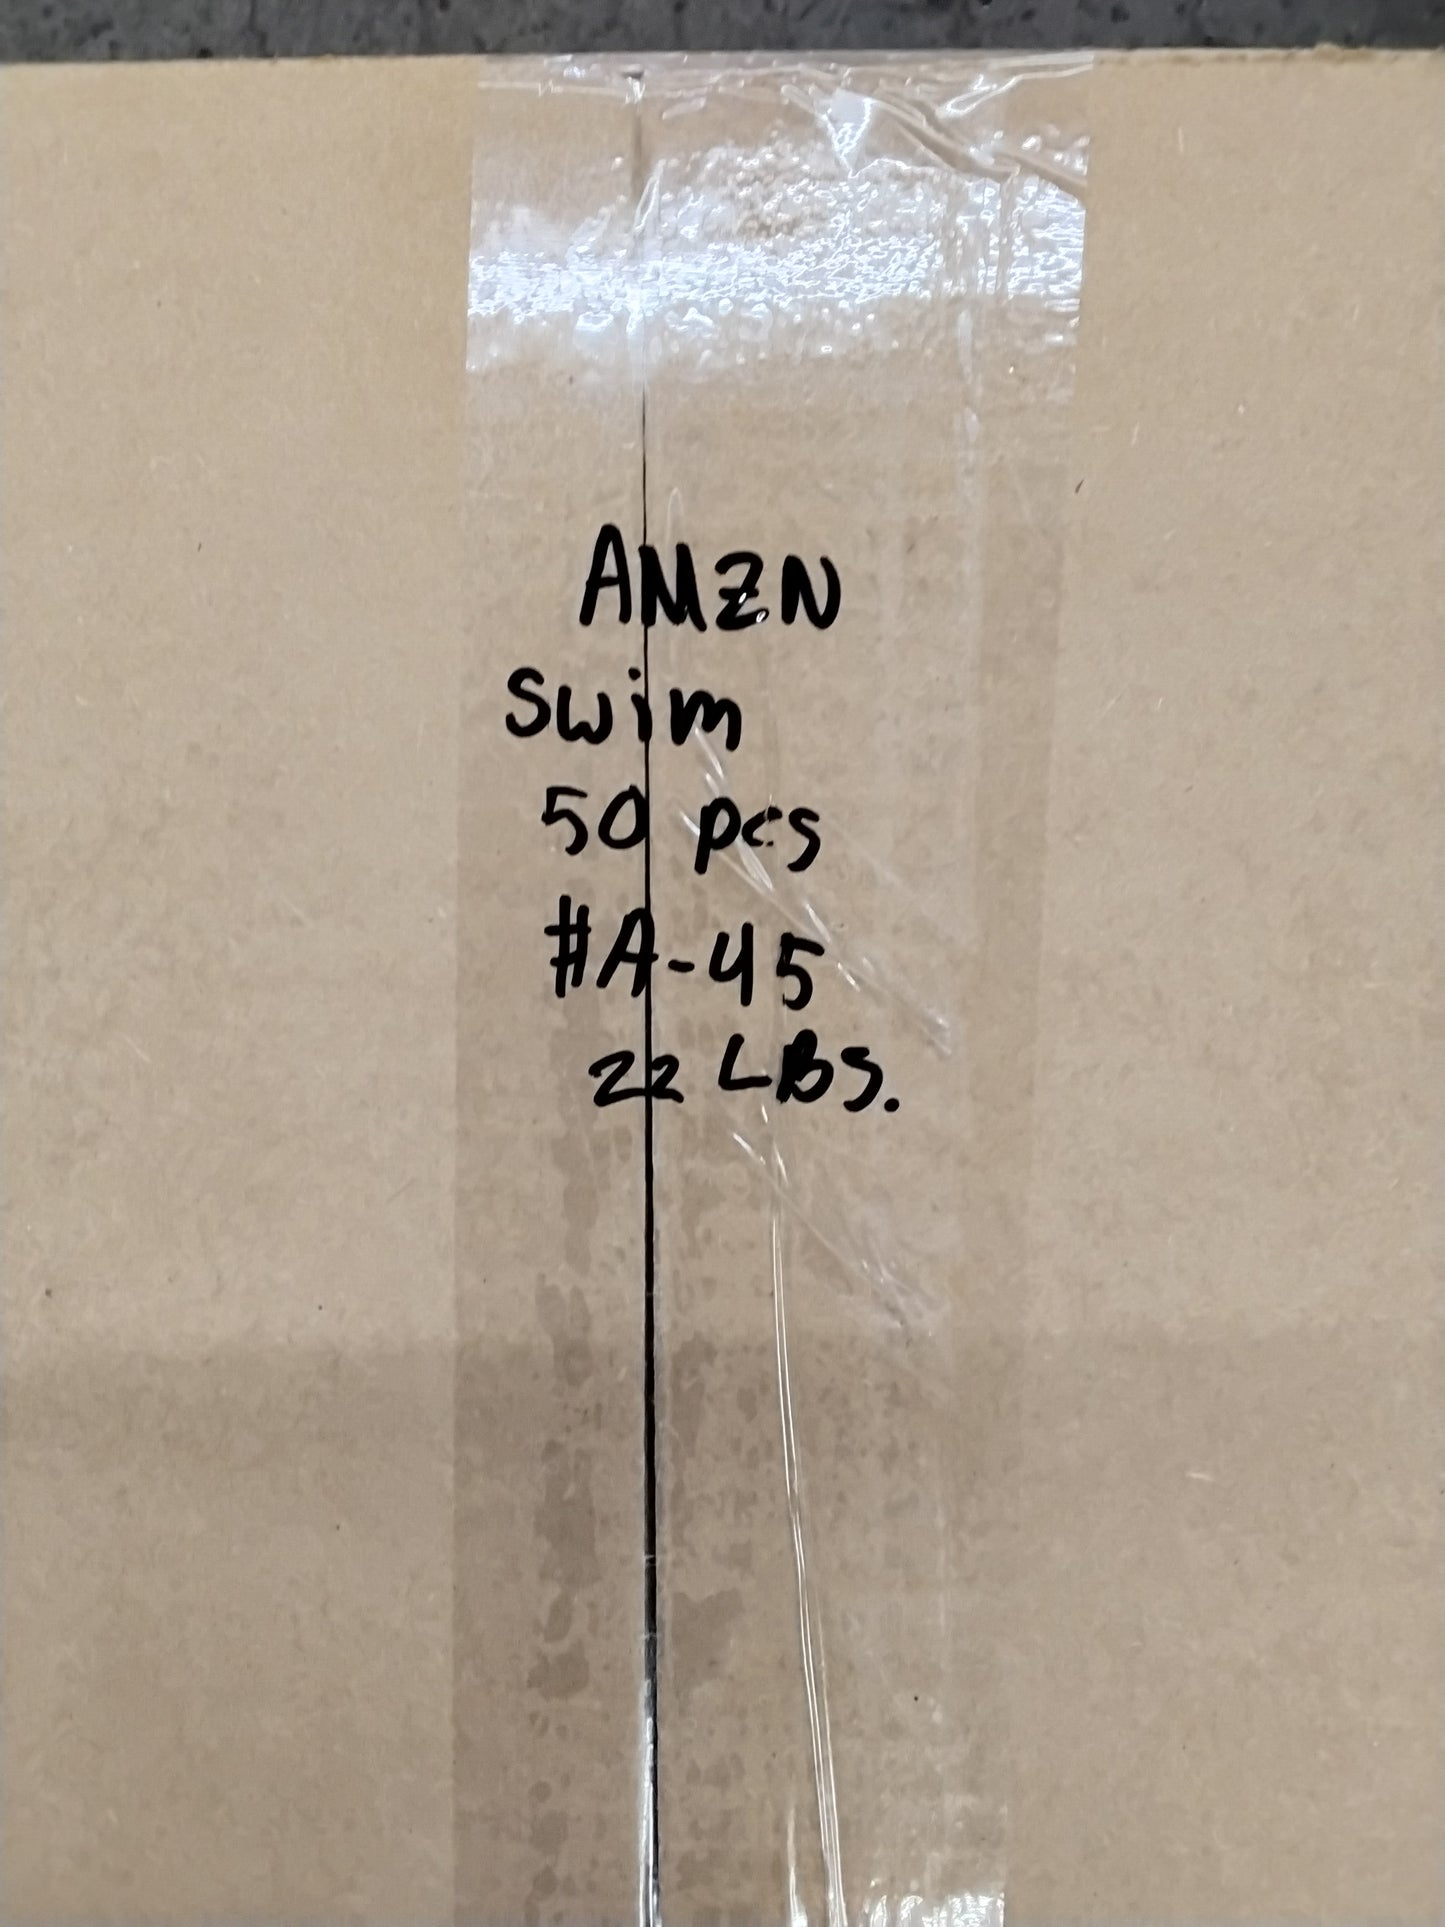 AMZN
Swim
50 pcs
#A-45
22 LBS.